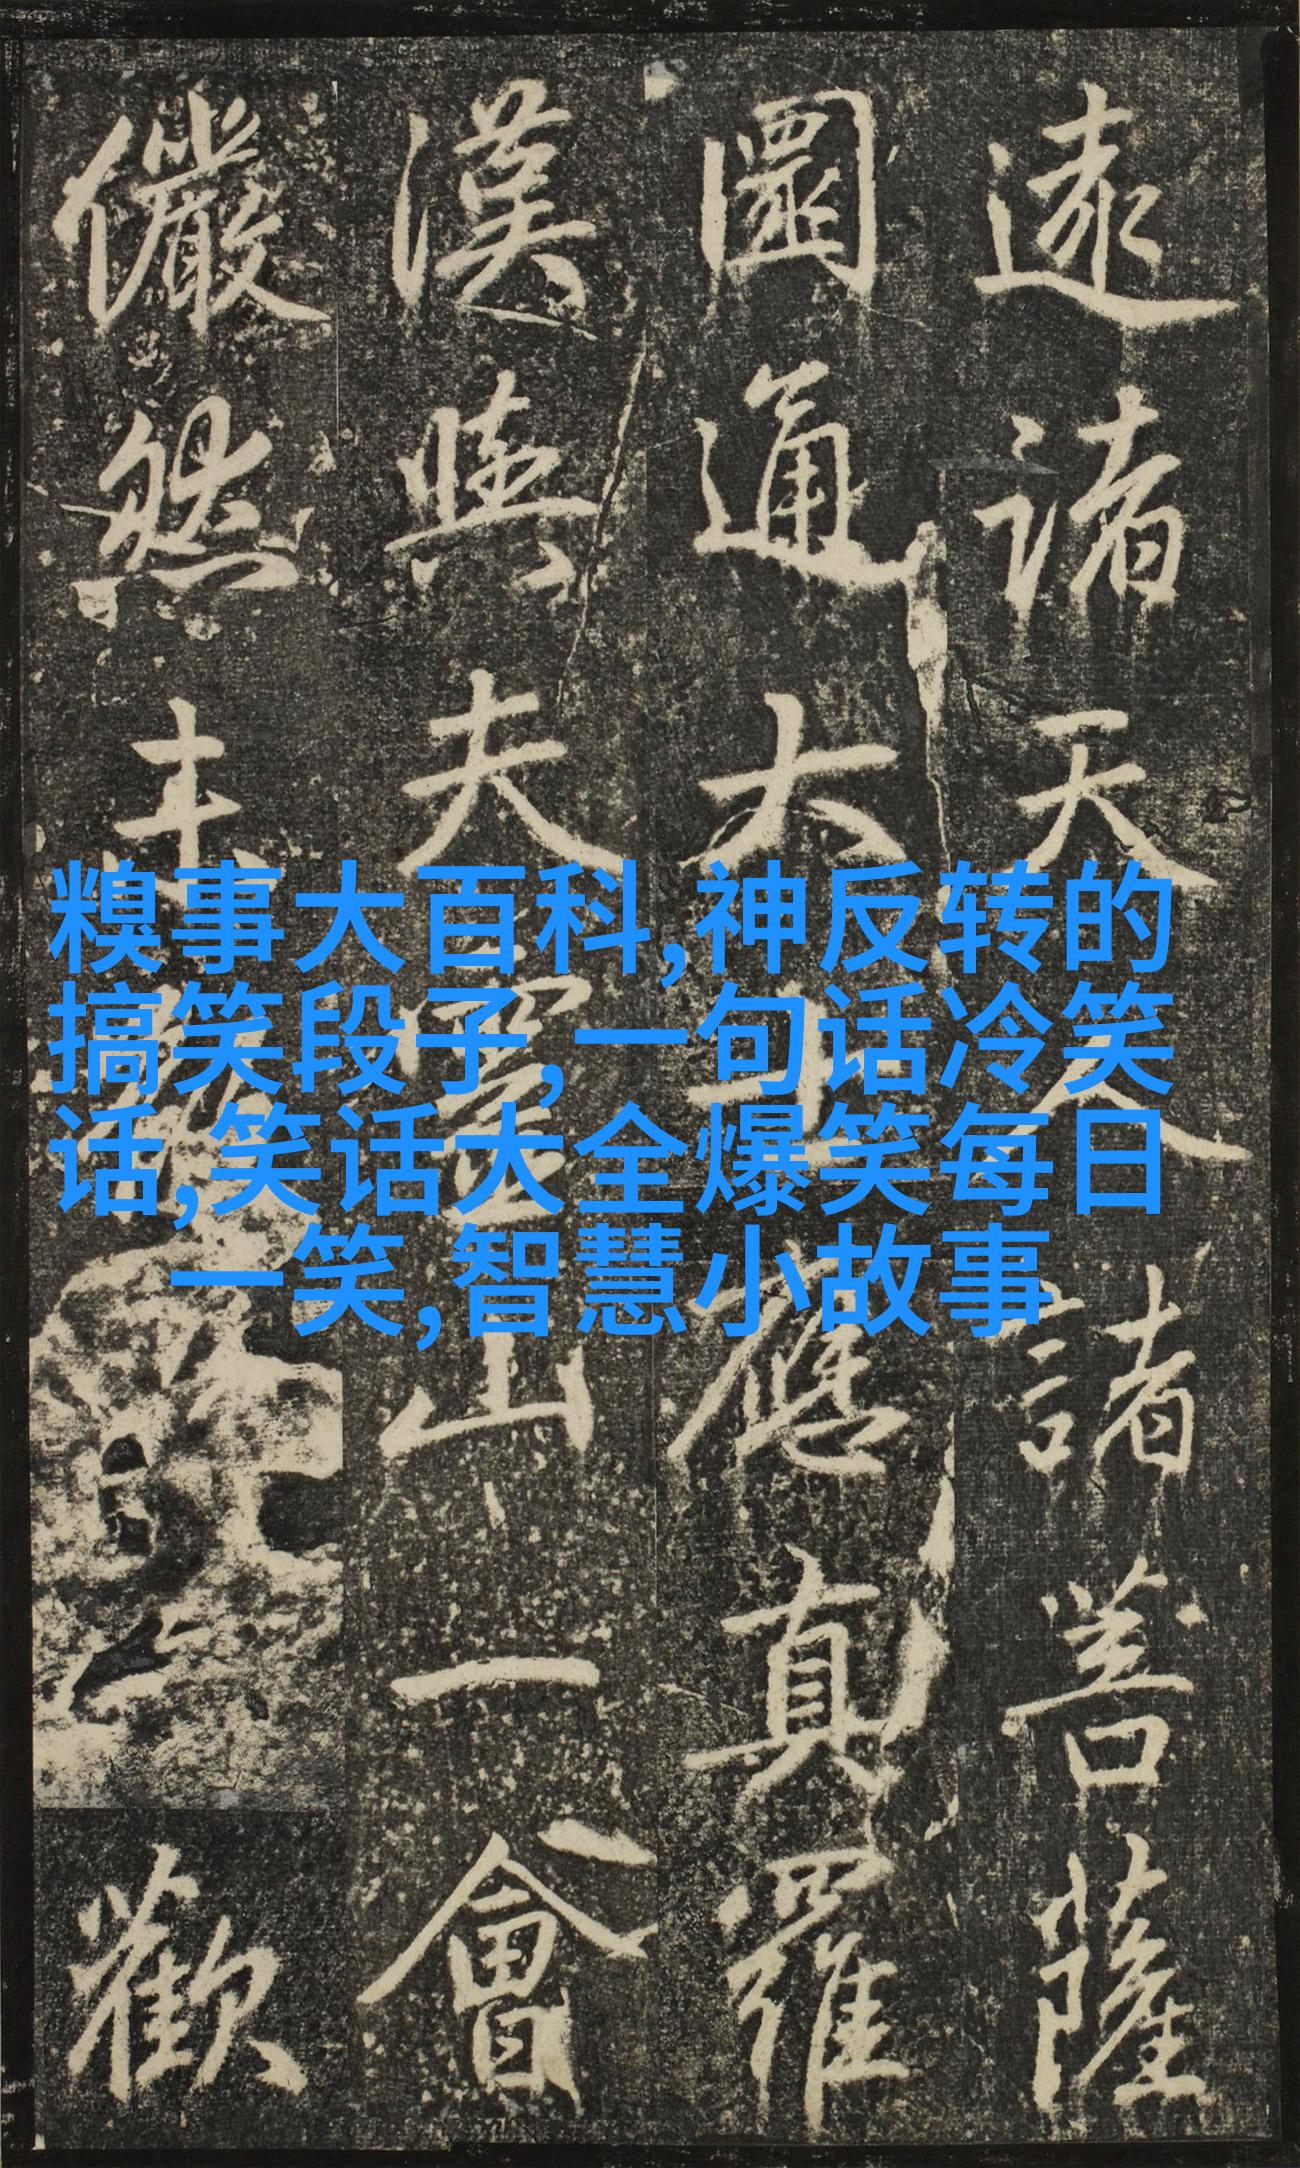 糗事大百科,神反转的
搞笑段子,一句话冷笑
话,笑话大全爆笑每日
一笑,智慧小故事
逺諸天人諸菩薩
圓通大士應真羅
漢與夫靈山一會
儼然未歡